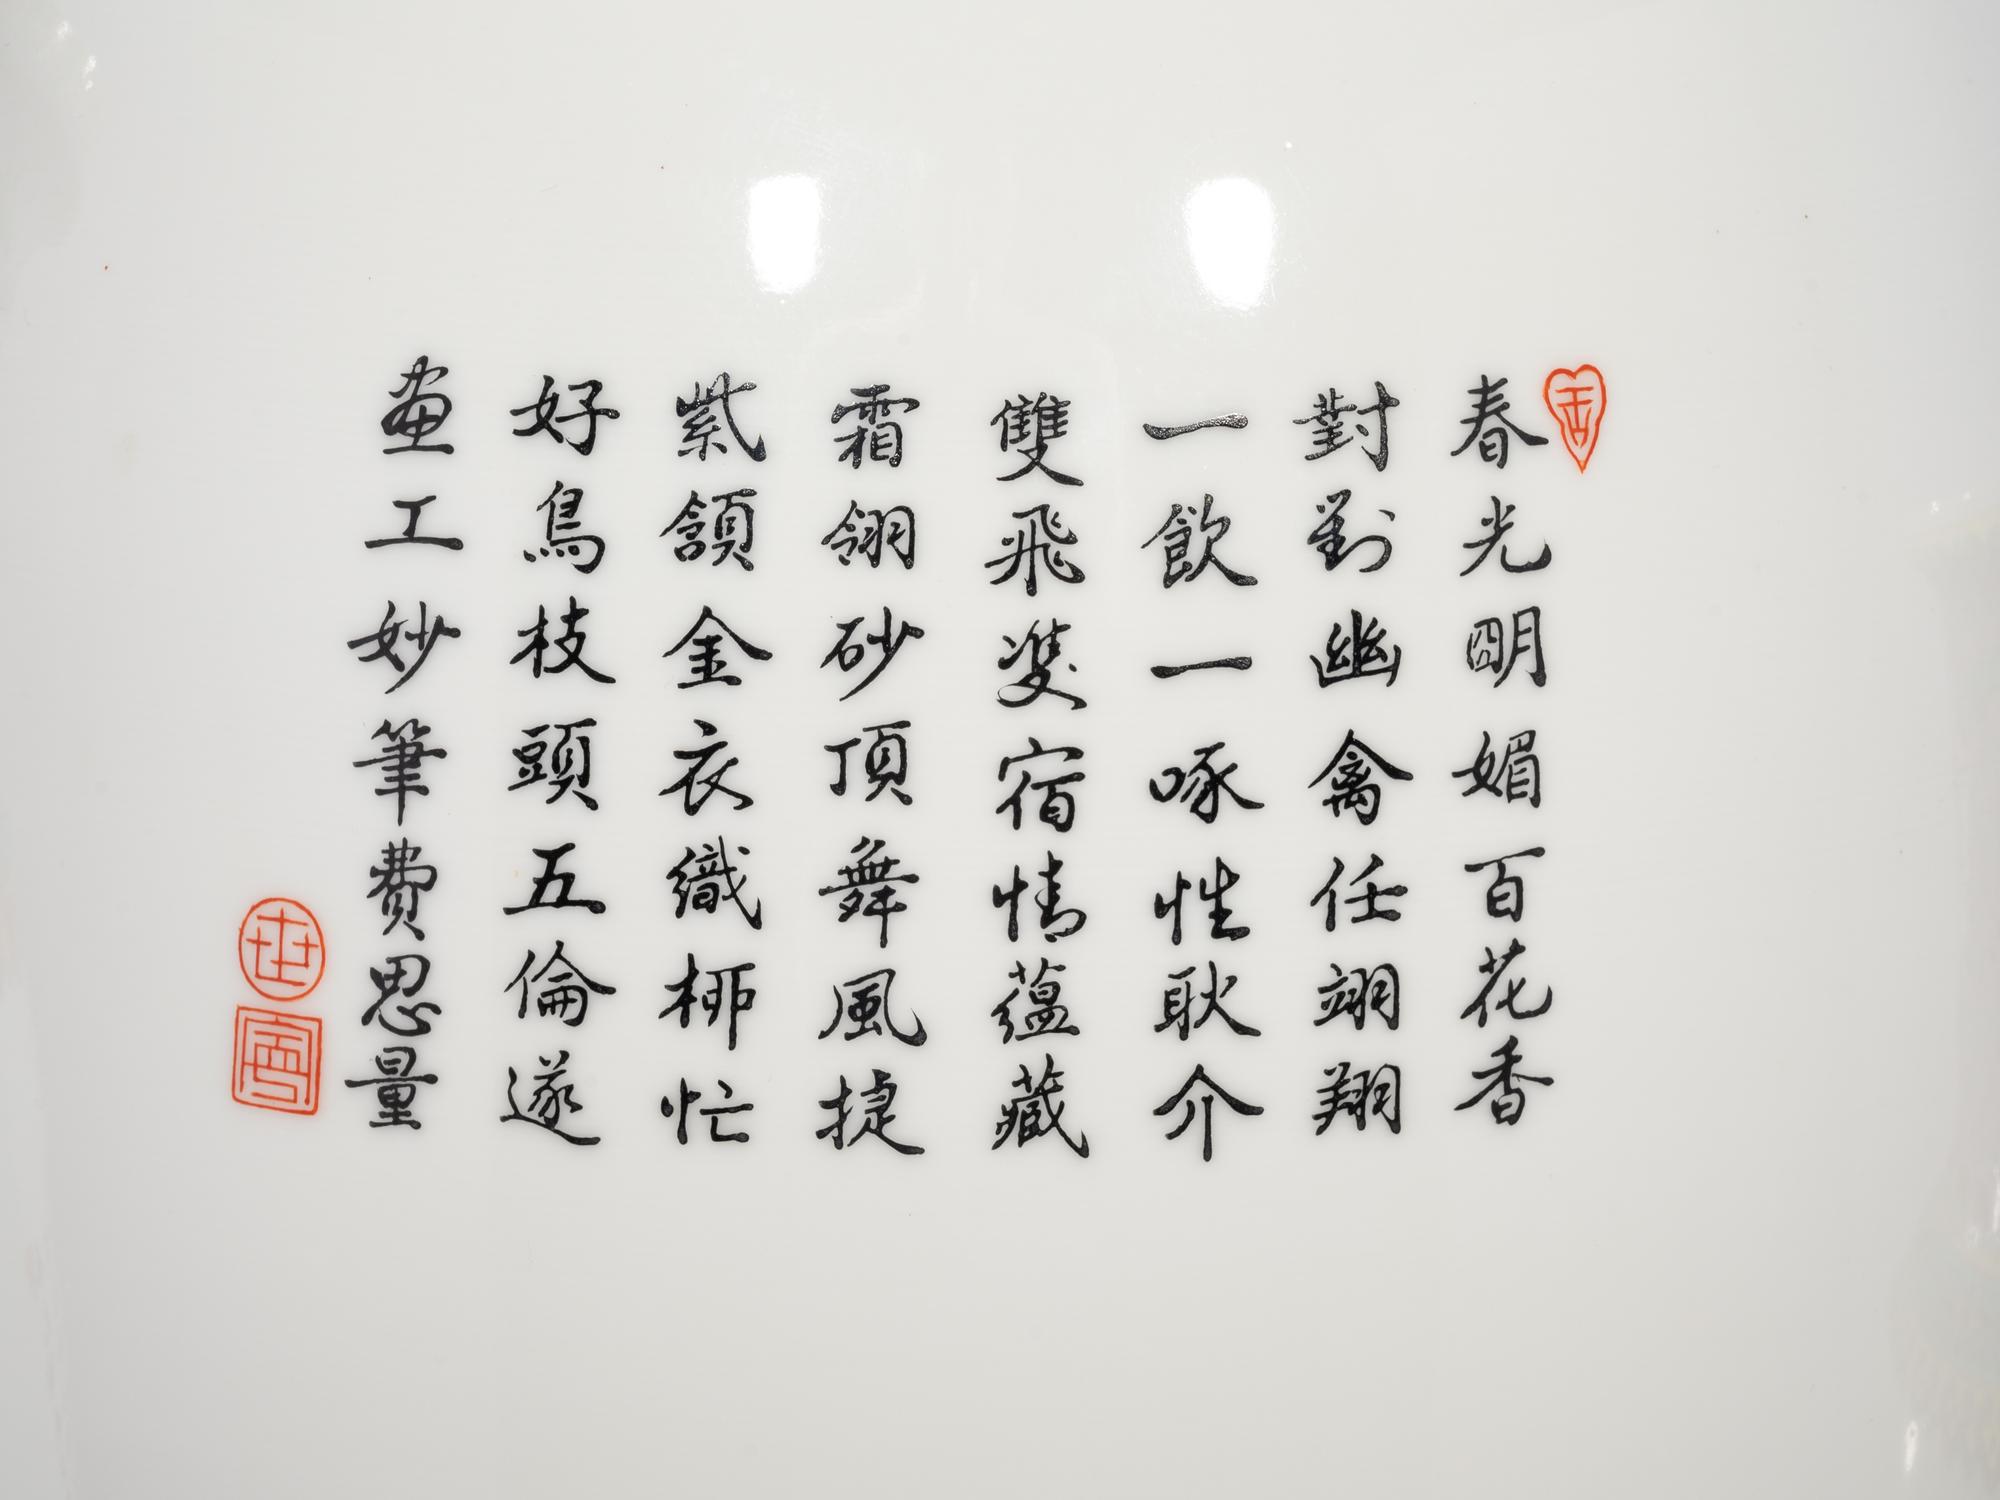 春光明媚百花香
對對幽禽任翊翔
一飲一啄性耿介
雙飛雙宿情蘊藏
霜翎砂頂舞風捷
紫頷金衣織柳忙
好鳥枝頭五倫遂
畫工妙筆費思量